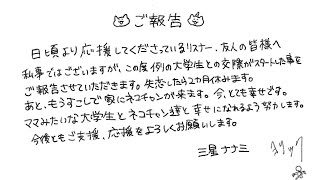 ご報告
日頃より応援してくださっているリスナー、友人の皆様へ
私事ではございますが、この度例の大学生との交際がスタートした事を
ご報告させていただきます。失恋したら2カ月休みます。
あと、もうすこしで家にネコチャンが来ます。今、とても幸せです。
ママみたいな大学生とネコチャン達と幸せになれるよう努力します。
今後ともご支援、応援をよろしくお願いします。
三星ナナミ